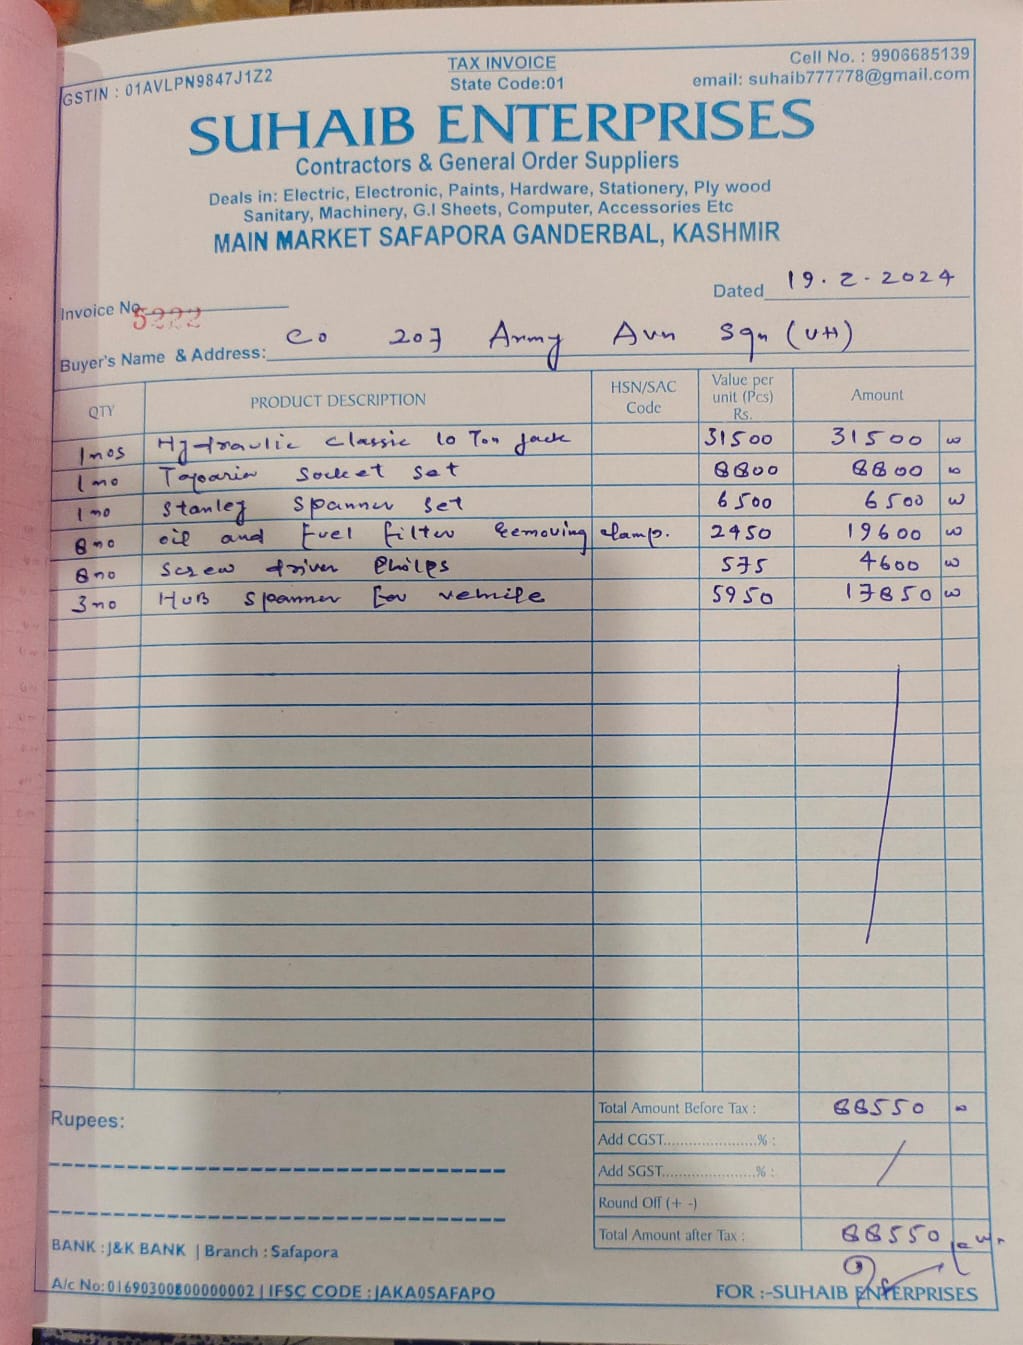 GSTIN : 01AVLPN9847J1Z2
TAX INVOICE
State Code:01
Cell No. : 9906685139
email: suhaib777778@gmail.com
SUHAIB ENTERPRISES
Contractors & General Order Suppliers
Deals in: Electric, Electronic, Paints, Hardware, Stationery, Ply wood
Sanitary, Machinery, G.I Sheets, Computer, Accessories Etc
MAIN MARKET SAFAPORA GANDERBAL, KASHMIR
Invoice No. 5222
Dated 19.2-2024
Buyer's Name & Address: Co 207 Army Avn Sqn (UH)
QTY PRODUCT DESCRIPTION HSN/SAC Code Value per unit (Pcs) Rs. Amount
1nos Hydraulic classic 10 Ton Jack 31500 31500
1no Taparia Socket set 8800 8800
1no Stanley Spanner set 6500 6500
8no oil and Fuel filter Removing clamp. 2450 19600
8no Screw driver Philps 575 4600
3no HUB Spanner For vehile 5950 17850
Rupees:
Total Amount Before Tax : 88550
Add CGST......................% :
Add SGST......................% :
Round Off (+ -)
Total Amount after Tax : 88550
BANK : J&K BANK | Branch : Safapora
A/c No: 0169030080000002 | IFSC CODE : JAKA0SAFAPO
FOR :-SUHAIB ENTERPRISES